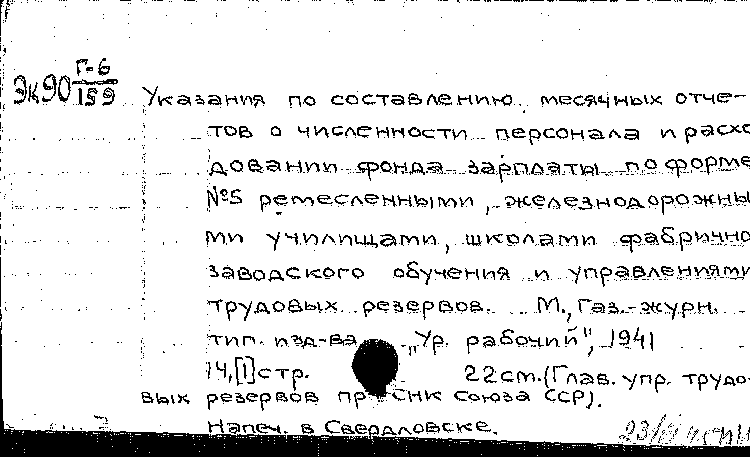 Эк90 Г-6/159
Указания по составлению месячных отче-
тов о численности персонала и расхо
довании фонда зарплаты по форме
№5 ремесленными, железнодорожны
ми училищами, школами фабрично
заводского обучения и управлениями
трудовых резервов. М., Газ.-журн.
тип. изд-ва „Ур. рабочий", 1941
14,[1]стр. 22см.(Глав. упр. трудо
вых резервов при СНК Союза ССР).
Напеч. в Свердловске.